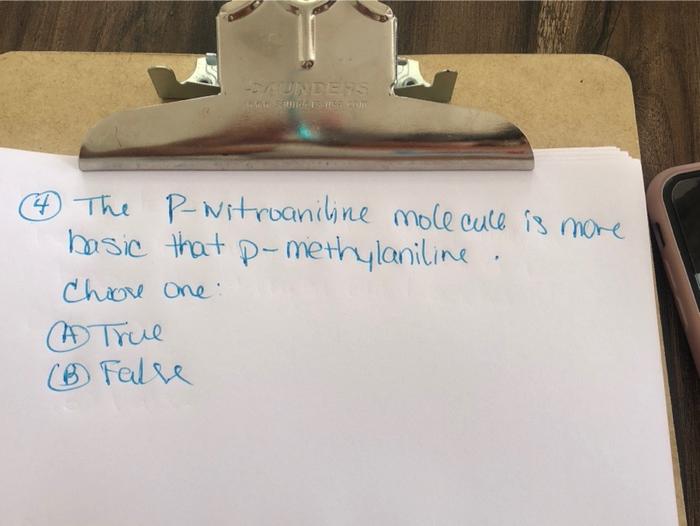 SAUNDERS
④ The P-Nitroaniline molecule is more
basic that p-methylaniline.
Choose one:
Ⓐ True
Ⓑ False